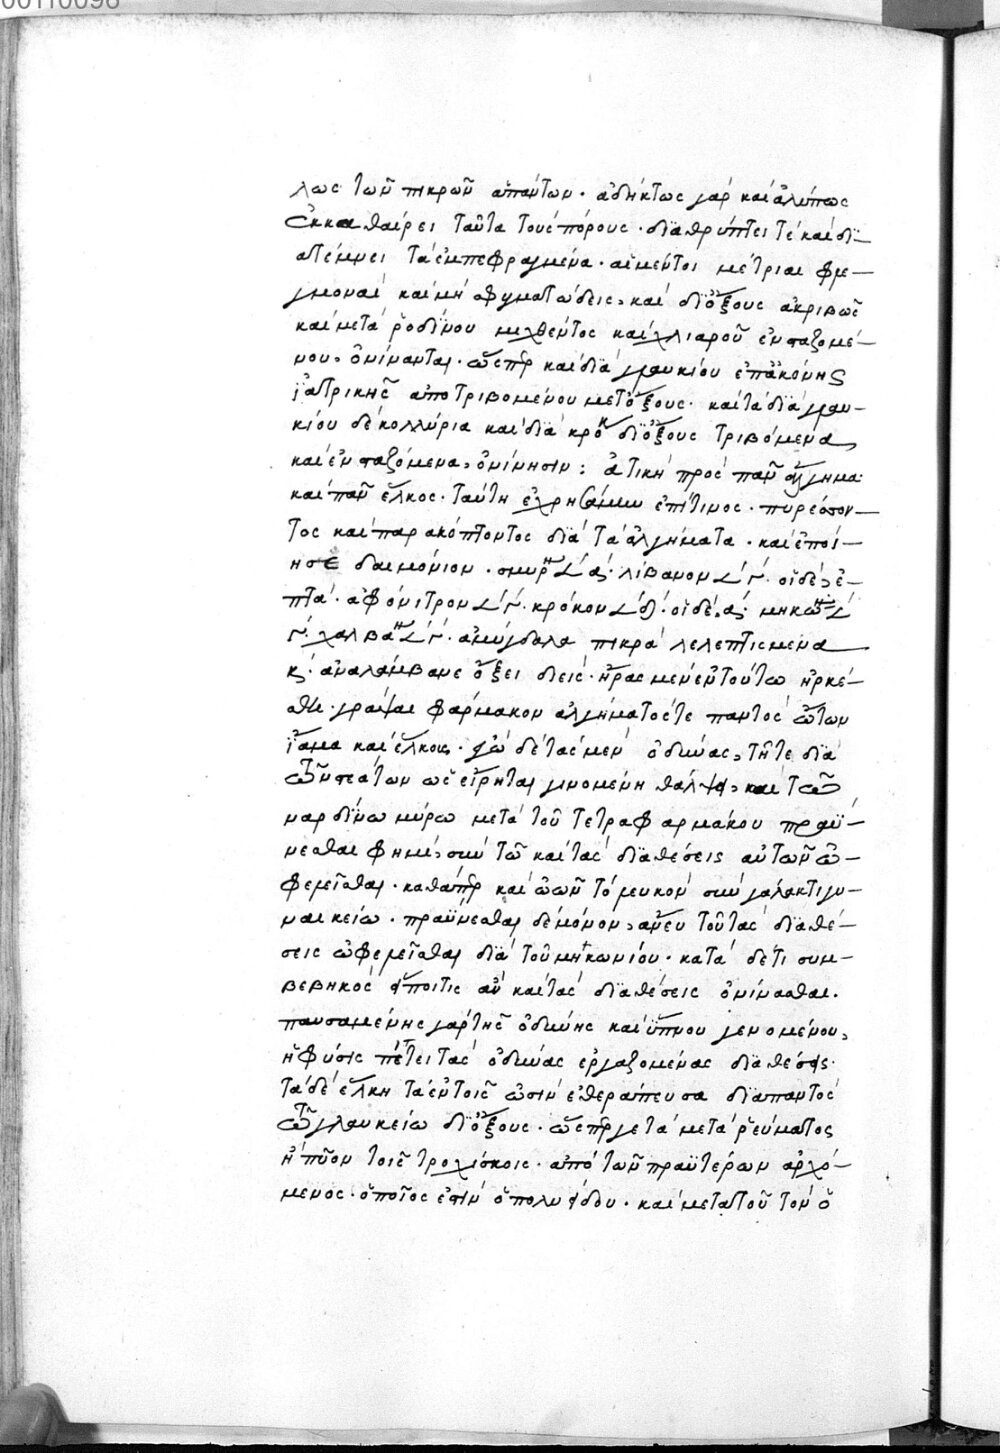 λως τῶν πικρῶν ἁπάντων· ἀδήκτως γὰρ καὶ ἀλύπως
ἐκκαθαίρει ταῦτα τοὺς πόρους· διαθρύπτει τὲ καὶ δι–
ατέμνει τὰ ἐμπεφραγμένα· αἱ μέντοι μέτριαι φλε–
γμοναὶ καὶ μὴ φυματώδεις, καὶ δι' ὄξους ἀκριβῶς
καὶ μετὰ ῥοδίνου μιχθέντος καὶ χλιαροῦ ἐνσταζομέ–
νου, ὀνίνανται· ὥσπερ καὶ διὰ γλαυκίου ἐπ' ἀκόνης
ἰατρικῆς ἀποτριβομένου μετ' ὄξους· καὶ τὰ διὰ γλαυ–
κίου δὲ κολλύρια καὶ διὰ κρόκ δι' ὄξους τριβόμενα
καὶ ἐνσταζόμενα, ὀνίνησιν: πρὸς πᾶν ἄλγημα
καὶ πᾶν ἕλκος· ταύτη ἐχρησάμην πυρέσσον–
τος καὶ παρακόπτοντος διὰ τὰ ἀλγήματα· καὶ ἐποί–
ησε δαιμόνιον· σμύρν α· λιβάνου γ· οἱ δὲ, ἑ–
πτά· ἀφρόνιτρον γ· κρόκου δ· οἱ δὲ, α· μηκων
γ· χαλβάν γ· ἀμύγδαλα πικρὰ λελεπισμένα
κ· ἀναλάμβανε ὄξει ἤρκε–
σθη γράψαι φάρμακον ἀλγήματός τε παντὸς ὤτων
ἴαμα καὶ ἕλκους· δὲ τὰς μὲν ὀδύνας, τῆ τε διὰ
τῶν στεάτων ὡς εἴρηται γινομένη θάλψει, καὶ τῶ
ναρδίνω μύρω μετὰ τοῦ τετραφαρμάκου πραΰ–
νεσθαι φημί, σὺν τῶ καὶ τὰς διαθέσεις αὐτῶν ὠ–
φελεῖσθαι· καθάπερ καὶ ὠῶν τὸ λευκὸν σὺν γάλακτι γυ–
ναικείω· πραΰνεσθαι δὲ μόνον, ἄνευ τοῦ τὰς διαθέ–
σεις ὠφελεῖσθαι διὰ τοῦ μηκωνίου· κατὰ δέ τι συμ–
βεβηκὸς εἴποι τις ἂν καὶ τὰς διαθέσεις ὀνίνασθαι.
παυσαμένης γὰρ τῆς ὀδύνης καὶ ὕπνου γενομένου,
ἡ φύσις πέττει τὰς ὀδύνας ἐργαζομένας διαθέσεις·
τὰ δὲ ἕλκη τὰ ἐν τοῖς ὠσὶν ἐθεράπευσα διαπαντὸς
τῶ γλαυκείω δι' ὄξους· ὥσπερ γε τὰ μετὰ ῥεύματος
ἢ πῦον τοῖς τροχίσκοις· ἀπὸ τῶν πραϋτέρων ἀρχό–
μενος· ὁποῖος ἐστὶν ὁ πολυείδου· καὶ μετὰ τοῦτον ὁ